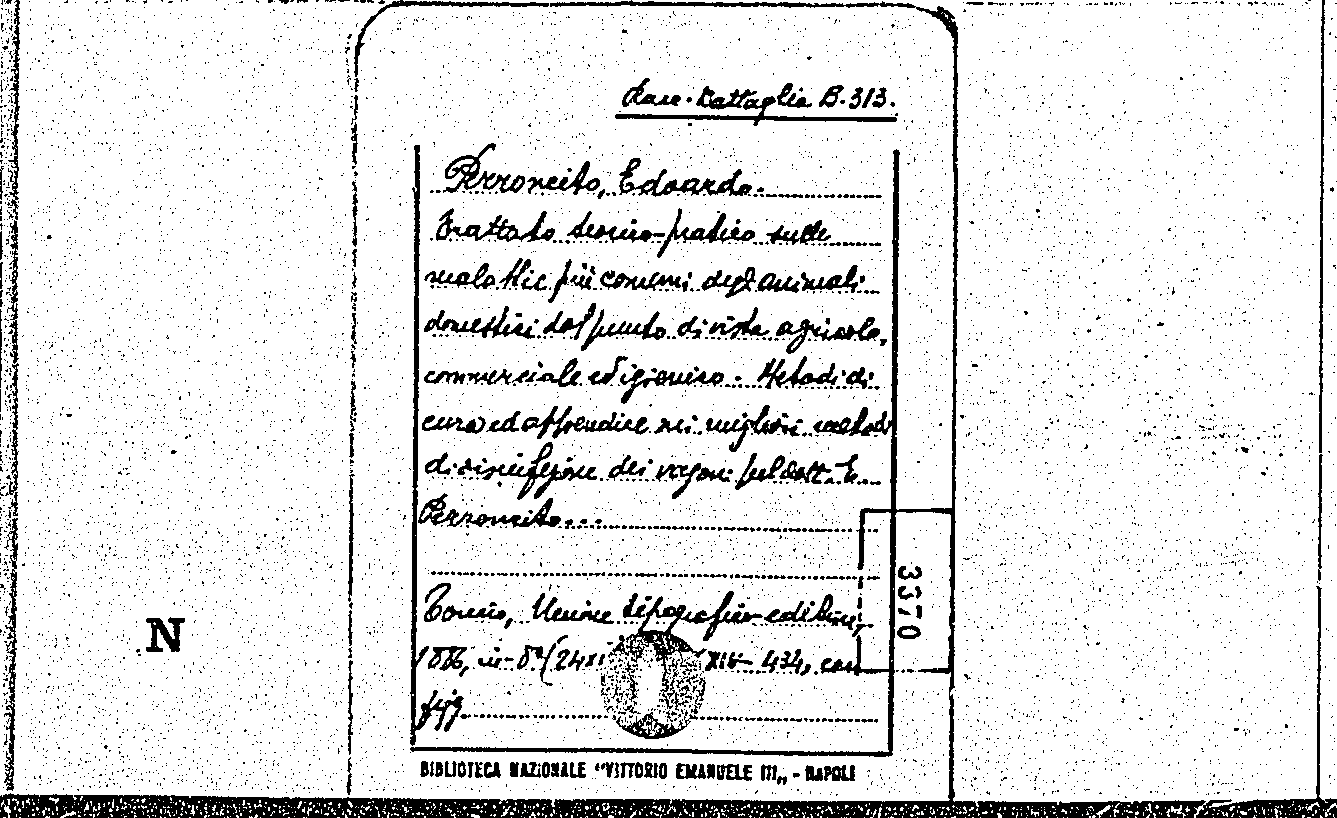 Racc. Battaglia B. 313.
Perroncito, Edoardo.
Trattato teorico-pratico sulle
malattie più comuni degli animali
domestici dal punto di vista agricolo,
commerciale ed igienico. Metodi di
cura ed appendice sui migliori metodi
di disinfezione dei vagoni pel dott. E.
Perroncito...
3370
Torino, Unione tipografico-editrice,
N
1886, in-8° (24x1 XIV-434, con
figg.
BIBLIOTECA NAZIONALE "VITTORIO EMANUELE III„ - NAPOLI